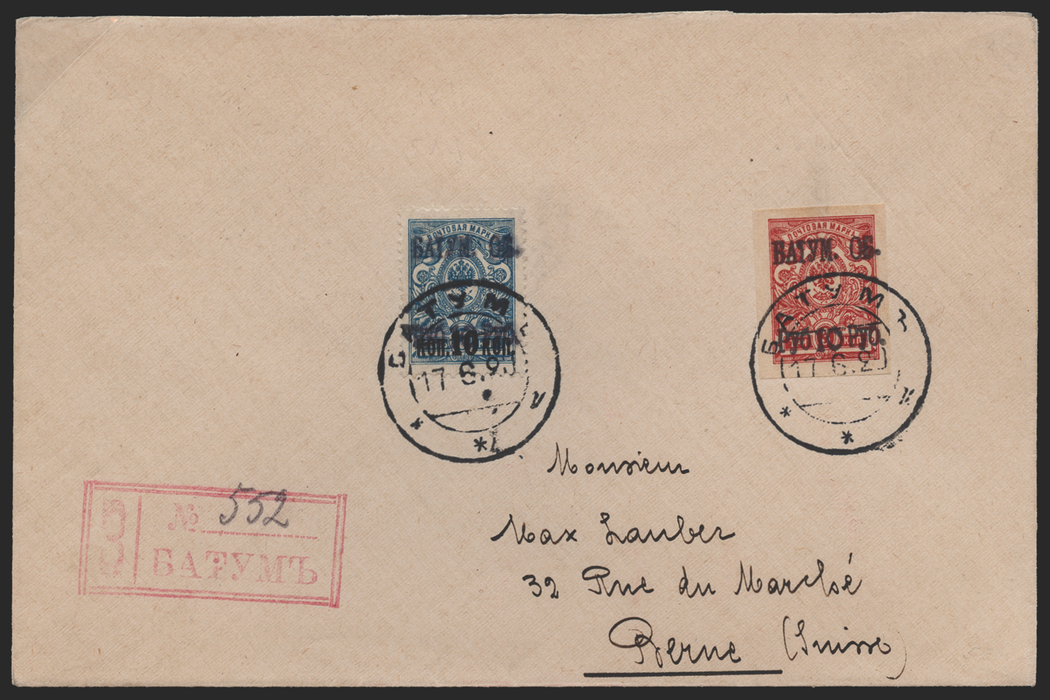 ПОЧТОВАЯ МАРКА
БАТУМ. ОБ.
КОП. 10 КОП.
БАТУМ
17 6 20
ПОЧТОВАЯ МАРКА
БАТУМ. ОБ.
РУБ 10 РУБ.
БАТУМ
17 6 20
З
№ 552
БАТУМЪ
Monsieur
Max Lauber
32 Rue du Marché
Berne (Suisse)